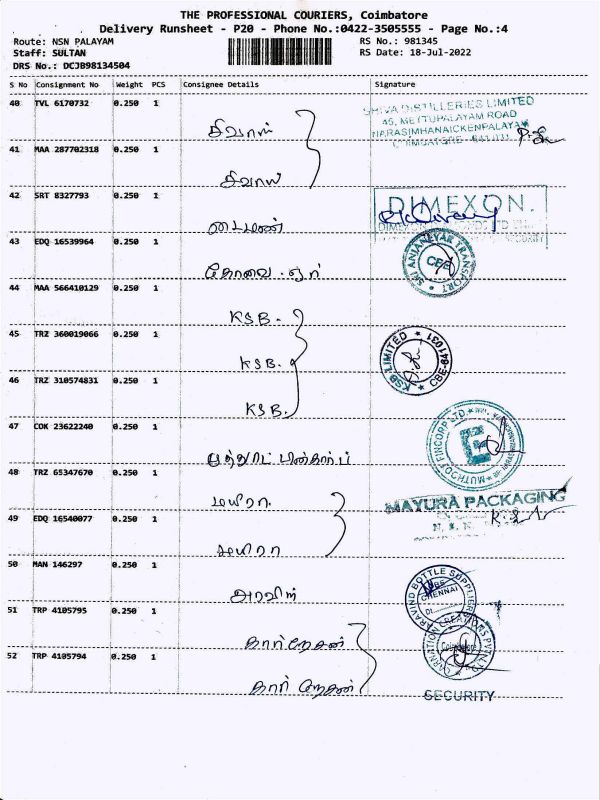 THE PROFESSIONAL COURIERS, Coimbatore
Delivery Runsheet - P20 - Phone No.:0422-3505555 - Page No.:4
Route: NSN PALAYAM RS No.: 981345
Staff: SULTAN RS Date: 18-Jul-2022
DRS No.: DCJB98134504
S No Consignment No Weight PCS Consignee Details Signature
40 TVL 6170732 0.250 1
SHIVA DISTILLERIES LIMITED
45, METTUPALAYAM ROAD
NARASIMHANAICKENPALAYAM
COIMBATORE - 641031
சிவாஸ்
41 MAA 287702318 0.250 1
சிவாஸ்
42 SRT 8327793 0.250 1
DIMEXON
டைமன்
SECURITY
43 EDQ 16539964 0.250 1
SRI ANJANEYAR TRANSPORT
CBE
கோவை
44 MAA 566410129 0.250 1
KSB.
45 TRZ 360019066 0.250 1
KSB LIMITED
CBE-641031
KSB.
46 TRZ 310574831 0.250 1
KSB.
47 COK 23622240 0.250 1
MUTHOOT FINCORP LTD.
முத்தூட் பின்கார்ப்
48 TRZ 65347670 0.250 1
MAYURA PACKAGING
மயிரா
49 EDQ 16540077 0.250 1
மயிரா
50 MAN 146297 0.250 1
ARAVIND BOTTLE SUPPLIERS
CHENNAI
அரவிந்
51 TRP 4105795 0.250 1
CARNATION CREATIONS PVT LTD
Coimbatore
கார்னேசன்
52 TRP 4105794 0.250 1
கார்னேசன்
SECURITY